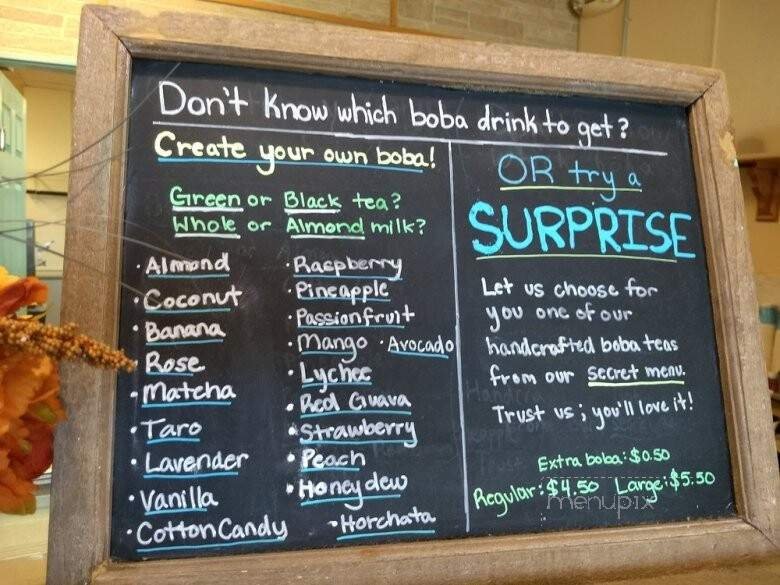 Don't know which boba drink to get?
Create your own boba!
Green or Black tea?
Whole or Almond milk?
· Almond
· Coconut
· Banana
· Rose
· Matcha
· Taro
· Lavender
· Vanilla
· Cotton Candy
· Raspberry
· Pineapple
· Passionfruit
· Mango · Avocado
· Lychee
· Red Guava
· Strawberry
· Peach
· Honeydew
· Horchata
OR try a
SURPRISE
Let us choose for
you one of our
handcrafted boba teas
from our secret menu.
Trust us; you'll love it!
Extra boba: $0.50
Regular: $4.50 Large: $5.50
menupix